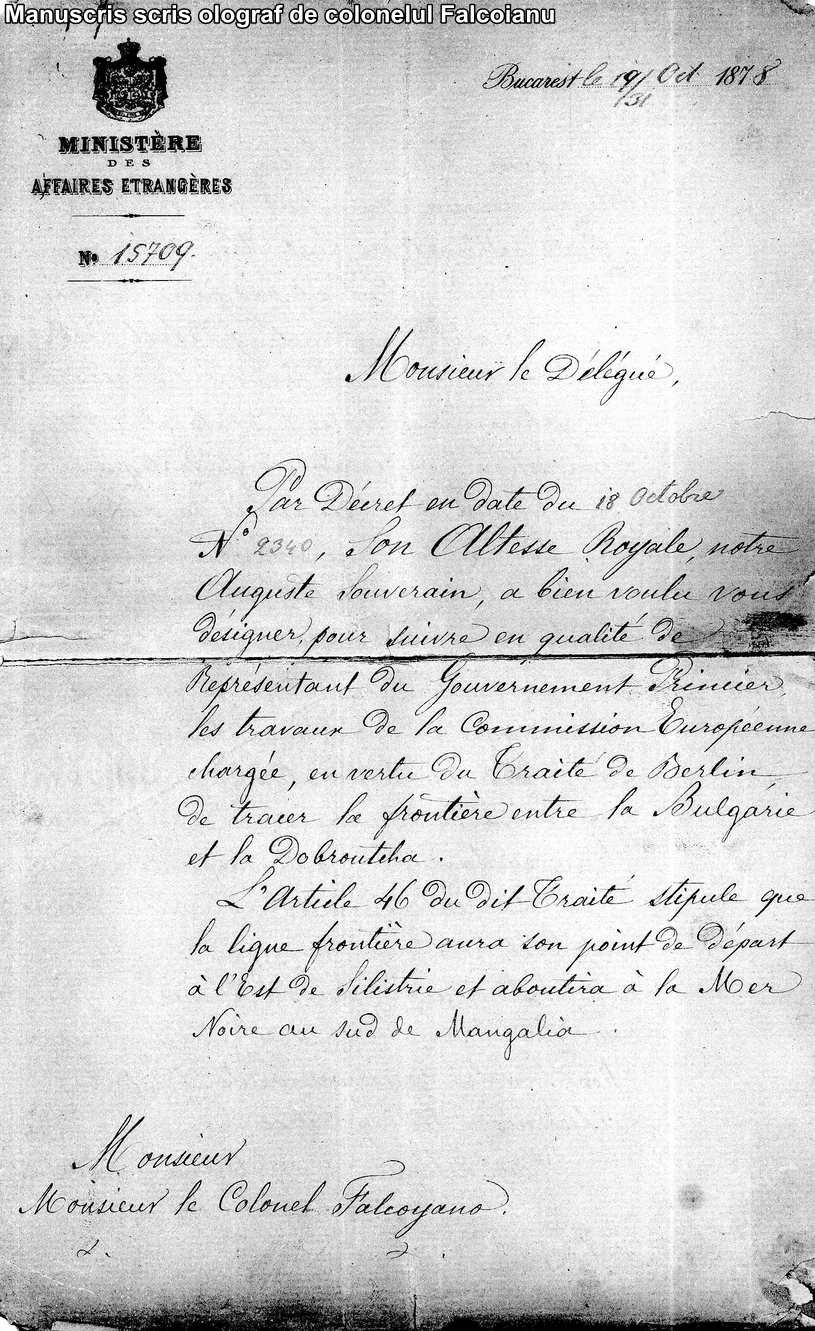 Manuscris scris olograf de colonelul Falcoianu
Bucarest le 19/31 Oct 1878
MINISTÈRE
DES
AFFAIRES ETRANGÈRES
No 15709.
Monsieur le Délégué,
Par Décret en date du 18 Octobre
No 2340, Son Altesse Royale, notre
Auguste Souverain, a bien voulu vous
désigner, pour suivre en qualité de
Représentant du Gouvernement Princier,
les travaux de la Commission Européenne
chargée, en vertu du Traité de Berlin,
de tracer la frontière entre la Bulgarie
et la Dobroutcha.
L'Article 46 du dit Traité stipule que
la ligne frontière aura son point de départ
à l'Est de Silistrie et aboutira à la Mer
Noire au sud de Mangalia.
Monsieur
Monsieur le Colonel Falcoyano.